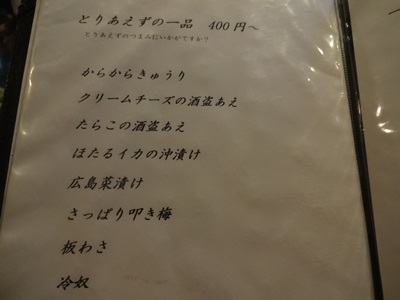 とりあえずの一品　400円～
とりあえずのつまみにいかがですか？
からからきゅうり
クリームチーズの酒盗あえ
たらこの酒盗あえ
ほたるイカの沖漬け
広島菜漬け
さっぱり叩き梅
板わさ
冷奴